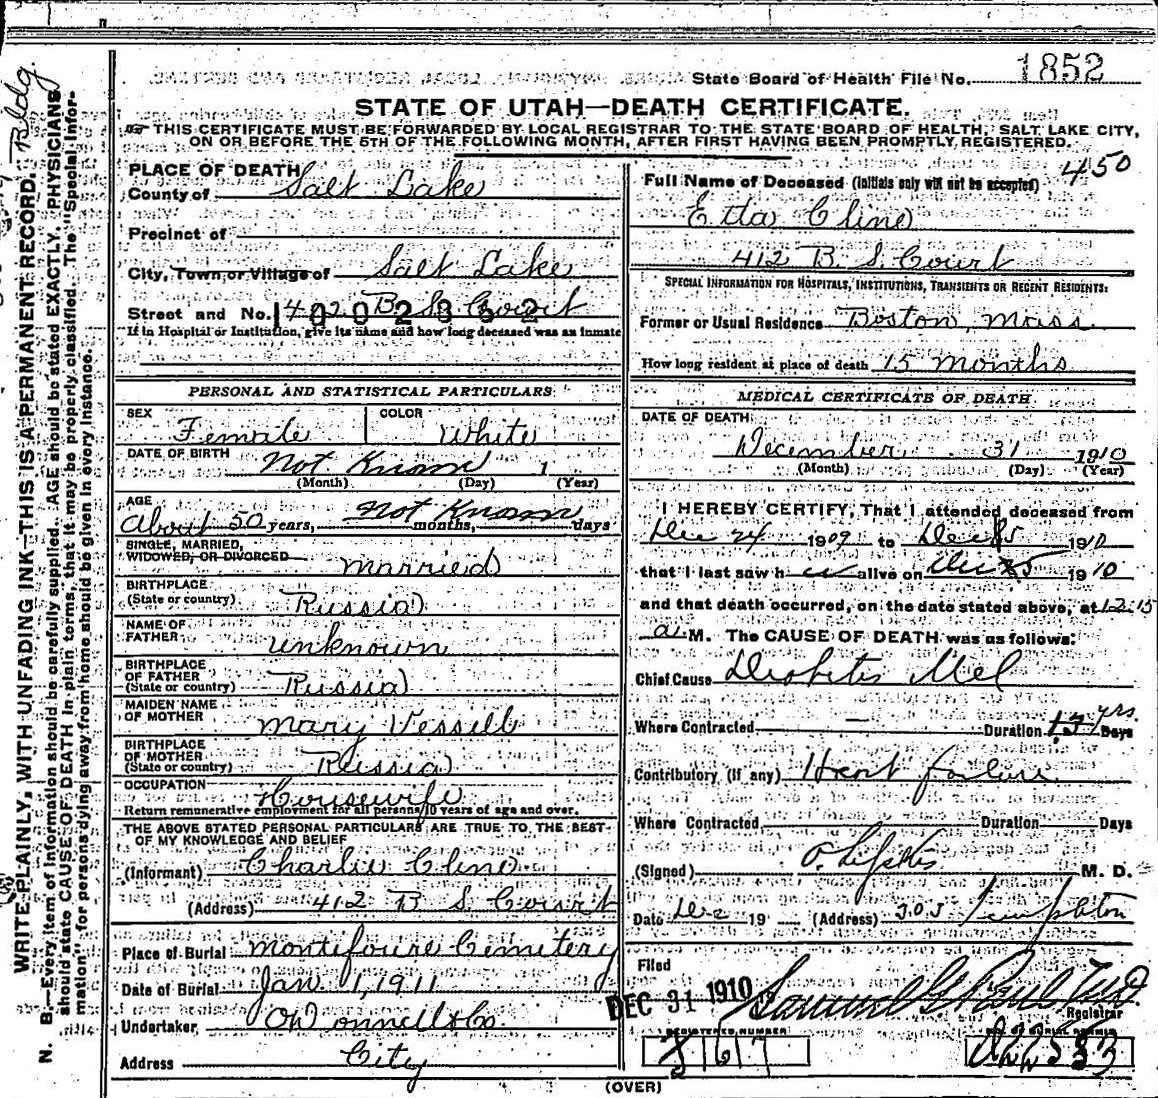 State Board of Health File No. 1852
STATE OF UTAH—DEATH CERTIFICATE.
THIS CERTIFICATE MUST BE FORWARDED BY LOCAL REGISTRAR TO THE STATE BOARD OF HEALTH, SALT LAKE CITY,
ON OR BEFORE THE 5TH OF THE FOLLOWING MONTH, AFTER FIRST HAVING BEEN PROMPTLY REGISTERED.
PLACE OF DEATH
County of Salt Lake
Precinct of
City, Town or Village of Salt Lake
Street and No. B S Court
If in Hospital or Institution, give its name and how long deceased was an inmate
PERSONAL AND STATISTICAL PARTICULARS
SEX Female COLOR White
DATE OF BIRTH Not Known 1
(Month) (Day) (Year)
AGE
About 50 years, Not Known months, days
SINGLE, MARRIED,
WIDOWED, OR DIVORCED Married
BIRTHPLACE
(State or country) Russia
NAME OF
FATHER unknown
BIRTHPLACE
OF FATHER
(State or country) Russia
MAIDEN NAME
OF MOTHER Mary Vessell
BIRTHPLACE
OF MOTHER
(State or country) Russia
OCCUPATION Housewife
Return remunerative employment for all persons 10 years of age and over.
THE ABOVE STATED PERSONAL PARTICULARS ARE TRUE TO THE BEST
OF MY KNOWLEDGE AND BELIEF
(Informant) Charlie Cline
(Address) 412 B S Court
Place of Burial Montifoure Cemetery
Date of Burial Jan 1, 1911
Undertaker O'Donnell & Co.
Address City
450
Full Name of Deceased (Initials only will not be accepted)
Etta Cline
412 B. S. Court
SPECIAL INFORMATION FOR HOSPITALS, INSTITUTIONS, TRANSIENTS OR RECENT RESIDENTS:
Former or Usual Residence Boston, Mass.
How long resident at place of death 15 months
MEDICAL CERTIFICATE OF DEATH
DATE OF DEATH:
December 31 1910
(Month) (Day) (Year)
I HEREBY CERTIFY, That I attended deceased from
Dec 24 1909 to Dec 1910
that I last saw h er alive on Dec 1910
and that death occurred, on the date stated above, at 12.15
a. M. The CAUSE OF DEATH was as follows:
Chief Cause Diabetis Mel
Where Contracted — Duration yrs. Days
Contributory (if any) Heart failure
Where Contracted Duration Days
(Signed) M. D.
Date Dec 19 (Address) 303 Templeton
Filed
DEC 31 1910 Samuel G. Paul M.D.
Registrar
REGISTERED NUMBER
(OVER)
Bldg.
WRITE PLAINLY, WITH UNFADING INK—THIS IS A PERMANENT RECORD.
N. B.—Every item of information should be carefully supplied. AGE should be stated EXACTLY. PHYSICIANS
should state CAUSE OF DEATH in plain terms, that it may be properly classified. The "Special Infor-
mation" for persons dying away from home should be given in every instance.